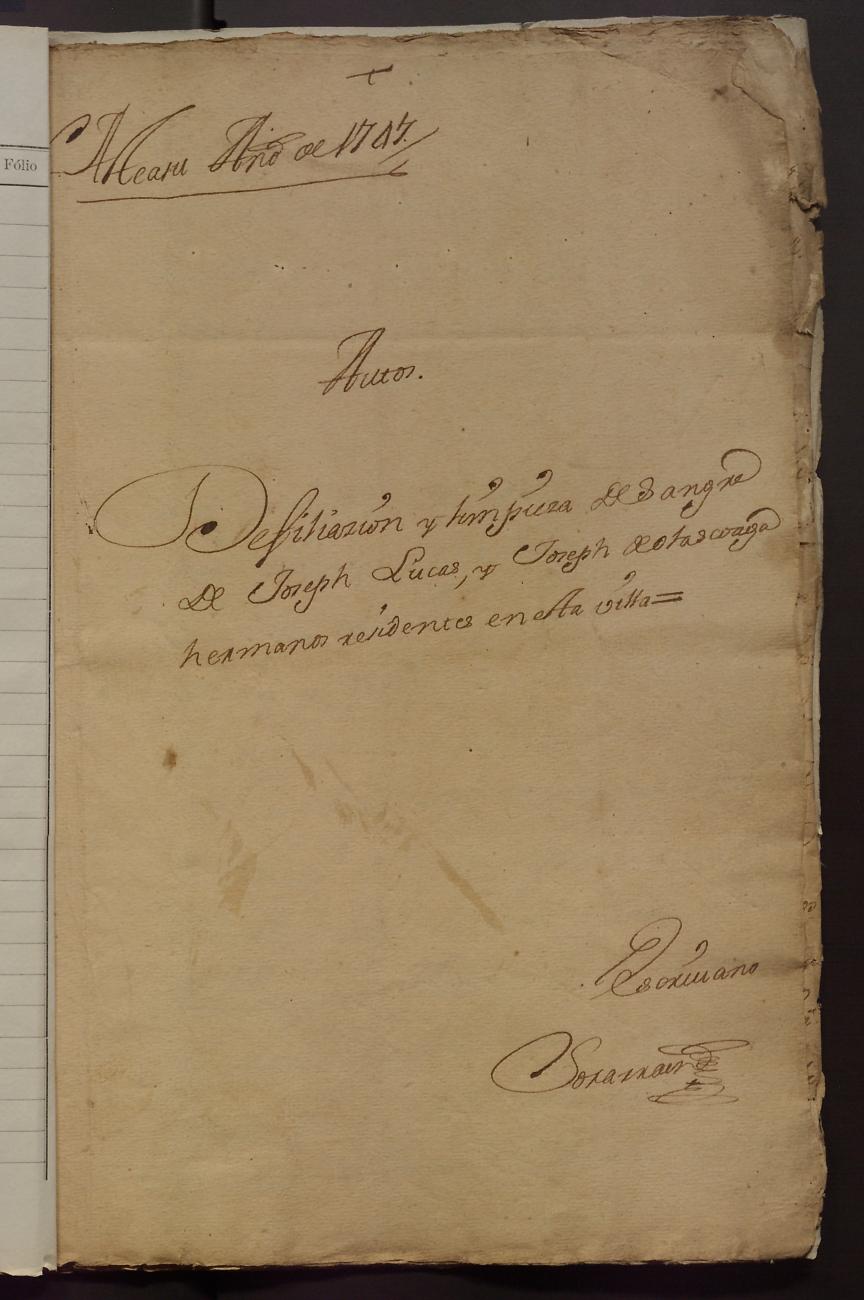 Fólio
+
Año de 1747
Autos.
De filiazion y limpieza de Sangre
de Joseph Lucas, y Joseph de olascoaga
hermanos residentes en esta villa=
Escriuano